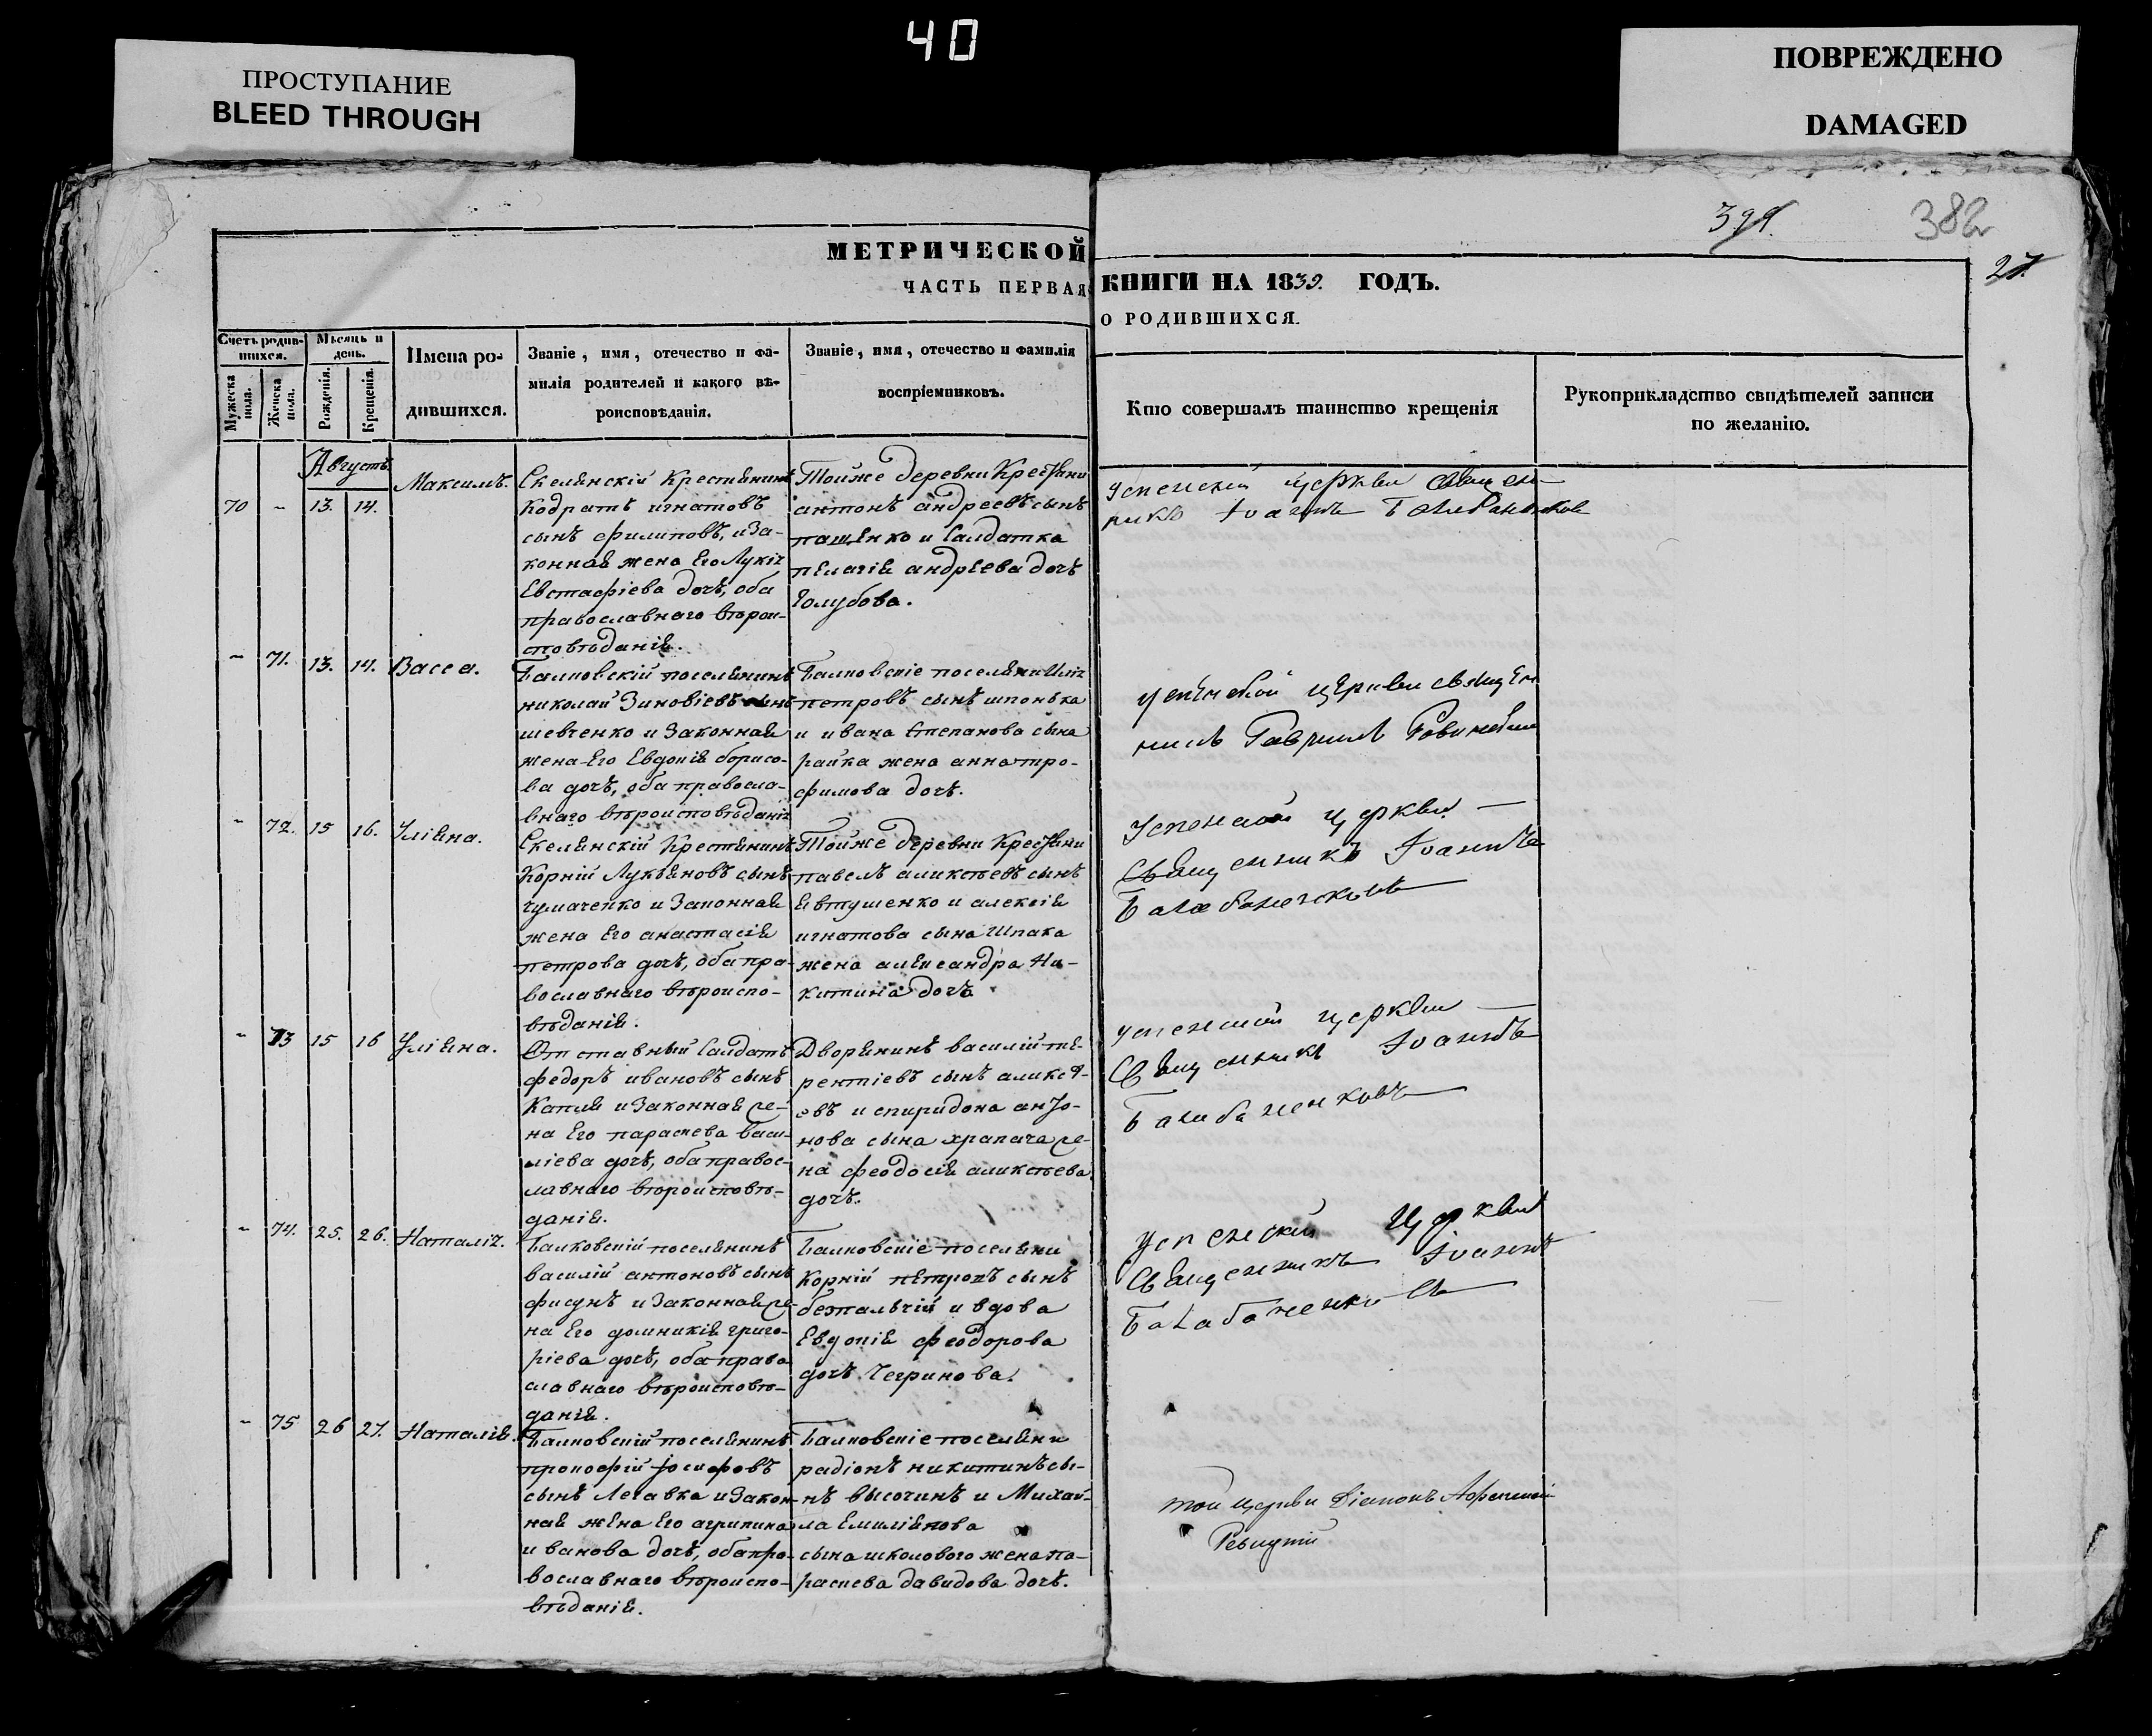 40
ПРОСТУПАНИЕ
BLEED THROUGH
ПОВРЕЖДЕНО
DAMAGED
382
27.
МЕТРИЧЕСКОЙ
ЧАСТЬ ПЕРВАЯ
КНИГИ НА 1839. ГОДЪ.
О РОДИВШИХСЯ.
Счетъ родив-
шихся.
Мужеска
пола.
Женска
пола.
Мѣсяцъ и
день.
Рожденія.
Крещенія.
Имена ро-
дившихся.
Званіе, имя, отечество и фа-
милія родителей и какого вѣ-
роисповѣданія.
Званіе, имя, отечество и фамилія
воспріемниковъ.
Кто совершалъ таинство крещенія
Рукоприкладство свидѣтелей записи
по желанію.
Августъ
70 - 13. 14. Максимъ.
Скелянскій Крестянинъ
Кодратъ игнатовъ
сынъ филиповъ, и За-
конная жена Его Лукія
Евстафіева дочь, оба
православнаго вѣрои-
сповѣданія.
Тойже деревни Крестяни
антонъ андреевъ сынъ
пащенко и Салдатка
пелагія андреева дочь
Голубова.
Успенской церкви священ-
никъ Іоаннъ
- 71. 13. 14. Васса.
Балковскій поселянинъ
николай Зиновіевъ сынъ
шевченко и Законная
жена Его Евдокія борисо-
ва дочь, оба правосла-
внаго вѣроисповѣданія
Балковскіе поселяни Илія
петровъ сынъ шпонька
и ивана Степанова сына
райка жена анна тро-
фимова дочь.
Успенской церкви священ
никъ Гавриилъ
- 72. 15 16. Уліяна.
Скелянскій Крестянинъ
Корній Лукяновъ сынъ
чумаченко и Законная
жена Его анастасія
петрова дочь, оба пра-
вославнаго вѣроиспо-
вѣданія.
Тойже деревни Крестяни
павелъ аликсѣевъ сынъ
Явтушенко и алексія
игнатова сына Шпака
жена александра Ни-
китина дочь
Успенской церкви
Священникъ Іоаннъ
Балабаненковъ
- 73 15 16 Уліяна.
Отставный Салдатъ
федоръ ивановъ сынъ
Капля и Законная же-
на Его параскева васи-
ліева дочь, оба правос-
лавнаго вѣроисповѣ-
данія.
Дворянинъ василій те-
рентіевъ сынъ аликсѣ-
евъ и спиридона анто-
нова сына храпача же-
на феодосія аликсѣева
дочь.
Успенской церкви
Священникъ Іоаннъ
Балабаненковъ
- 74. 25. 26. Наталія.
Балковскій поселянинъ
василій антоновъ сынъ
фисунъ и Законная же-
на Его домникія григо-
ріева дочь, оба право
славнаго вѣроисповѣ-
данія.
Балковскіе поселяни
Корній петровъ сынъ
безпальчій и вдова
Евдокія феодорова
дочь Чегринова.
Успенской Церкви
Священникъ Іоаннъ
Балабаненковъ
- 75 26 27. Наталія.
Балковскій поселянинъ
прокофій іосифовъ
сынъ Легавка и Закон-
ная жена Его агрипина
иванова дочь, оба пра-
вославнаго вѣроиспо-
вѣданія.
Балковскіе поселяни
радіонъ никитинъ сы-
нъ высочинъ и Михай-
ла Емиліянова
сына школового жена па-
раскева давидова дочь.
той церкви Діаконъ